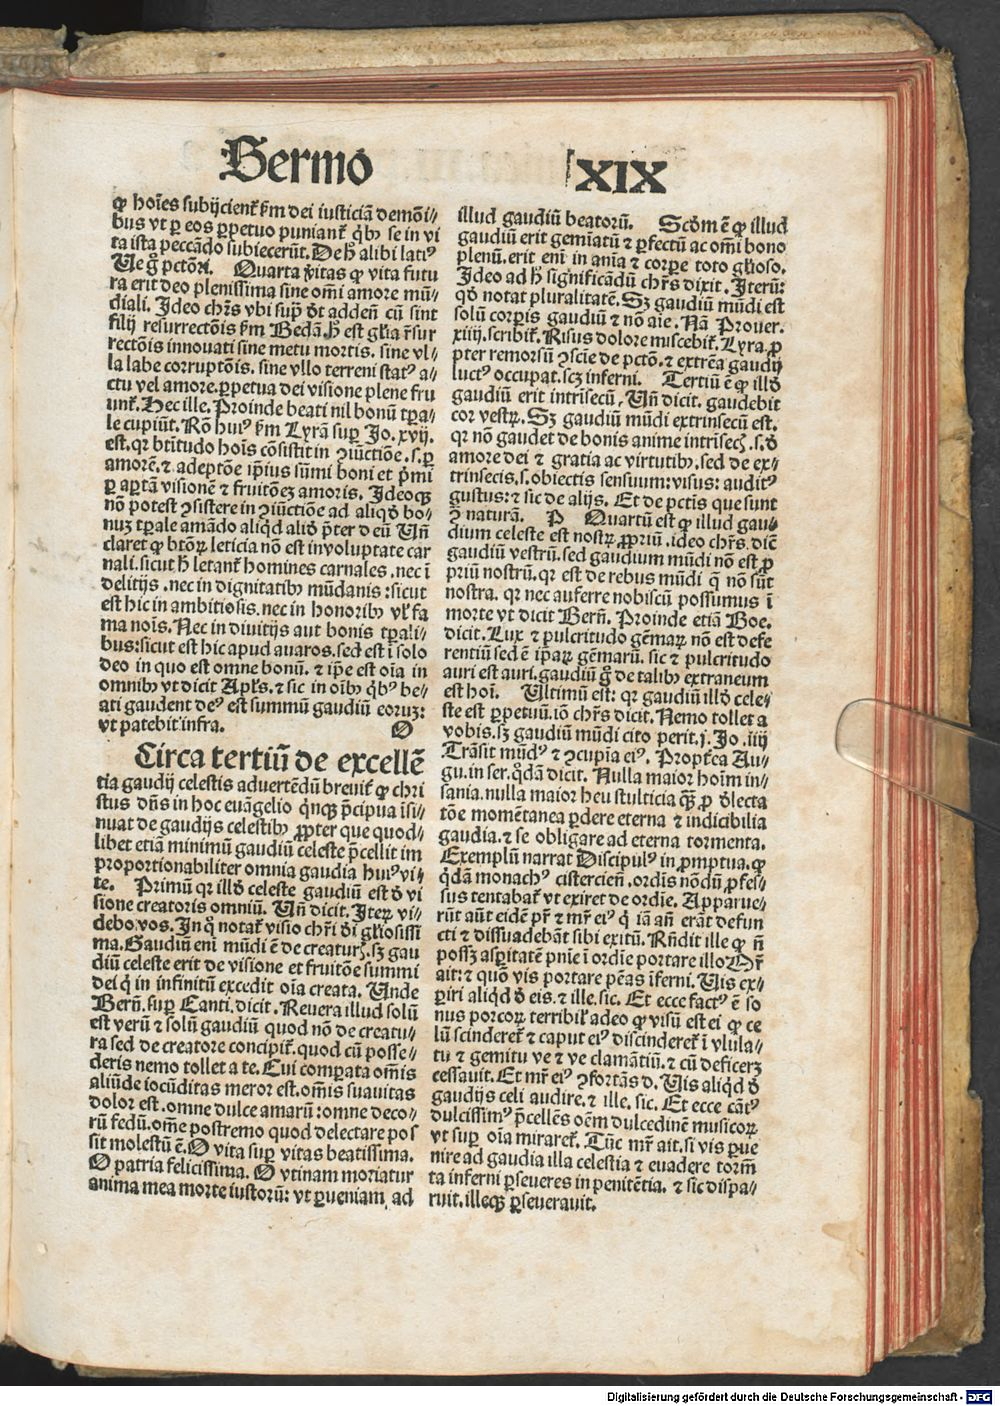 Sermo XIX
ꝙ hoīes subijcient᷑ ẜm dei iusticiā demōi⸗
bus vt ꝑ eos ꝑpetuo puniant᷑ qͥbꝫ se in vi
ta ista peccādo subiecerūt. De hͦ alibi latiꝰ
Ue gͦ pctōri. Quarta v̄itas ꝙ vita futu
ra erit deo plenissima sine om̄i amore mū⸗
diali. Ideo chrs̄ vbi supͣ dt̄ addēn cū sint
filij resurrectōis ẜm Bedā. hͦ est gl̄ia rͤsur
rectōis innouati sine metu mortis. sine vl⸗
la labe corruptōis. sine vllo terreni statꝰ a⸗
ctu vel amore. ꝑpetua dei visione plene fru
unt᷑. Hec ille. Proinde beati nil bonū tꝑa⸗
le cupiūt. Rō huiꝰ ẜm Lyrā suꝑ Jo. xvij.
est. qr btītudo hoīs cōsistit in ꝯiūctiōe. s. ꝑ
amorē. ⁊ adeptōe ip̄ius sūmi boni et p̄mi
ꝑ aꝑtā visionē ⁊ fruitōeꝫ amoris. Ideoqꝫ
nō potest ꝯsistere in ꝯiūctiōe ad aliqd̓ bo⸗
nuꝫ tꝑale amādo aliqd̓ aliō p̄ter deū Un̄
claret ꝙ btōꝝ leticia nō est in voluptate car
nali. sicut hͦ letant᷑ homines carnales. nec ī
delitijs. nec in dignitatibꝫ mūdanis: sicut
est hic in ambitiosis. nec in honoribꝫ vl̓ fa
ma nois. Nec in diuitijs aut bonis tꝑali⸗
bus: sicut est hic apud auaros. sed est ī solo
deo in quo est omne bonū. ⁊ ip̄e est oīa in
omnibꝫ vt dicit Apl̓s. ⁊ sic in oībꝫ qͥbꝰ be⸗
ati gaudent deꝰ est summū gaudiū eoruꝫ:
vt patebit infra. O
Circa tertiū de excellē
tia gaudij celestis aduertēdū breuit᷑ ꝙ chri
stus dn̄s in hoc euāgelio qͥnqꝫ p̄cipua īsi⸗
nuat de gaudijs celestibꝫ ꝓpter que quod⸗
libet etiā minimū gaudiū celeste p̄cellit im
proportionabiliter omnia gaudia huiꝰ vi⸗
te. Primū qr illd̓ celeste gaudiū est d̓ vi
sione creatoris omniū. Un̄ dicit. Iteꝝ vi⸗
debo vos. In qͦ notat᷑ visio chrī dei gl̄iosissi
ma. Gaudiū eni mūdi ē de creaturꝭ. sꝫ gau
diū celeste erit de visione et fruitōe summi
dei qͥ in infinitū excedit oīa creata. Unde
Bern̄. suꝑ Canti. dicit. Reuera illud solū
est verū ⁊ solū gaudiū quod nō de creatu⸗
ra sed de creatore concipit᷑. quod cū posse⸗
deris nemo tollet a te. Cui comꝑata om̄is
aliūde iocūditas meror est. om̄is suauitas
dolor est. omne dulce amarū: omne deco⸗
rū fedū. om̄e postremo quod delectare pos
sit molestū ē. O vita suꝑ vitas beatissima.
O patria felicissima. O vtinam moriatur
anima mea morte iustorū: vt ꝑueniam ad
illud gaudiū beatorū. Scd̓m ē ꝙ illud
gaudiū erit gemīatū ⁊ ꝑfectū ac om̄i bono
plenū. erit eni in aīa ⁊ corꝑe toto gl̄ioso.
Ideo ad hͦ significādū chrs̄ dixit. Iterū:
qd̓ notat pluralitatē. Sꝫ gaudiū mūdi est
solū corꝑis gaudiū ⁊ nō aīe. Nā Prouer.
xiiij. scribit᷑. Risus dolore miscebit᷑. Lyra. ꝓ
pter remorsū ꝯscīe de pctō. ⁊ extrēa gaudij
luctꝰ occupat. scꝫ inferni. Tertiū ē ꝙ illd̓
gaudiū erit intrīsecū, Un̄ dicit. gaudebit
cor vestꝝ. Sꝫ gaudiū mūdi extrinsecū est.
qr nō gaudet de bonis anime intrīsecꝭ. s. d̓
amore dei ⁊ gratia ac virtutibꝫ. sed de ex⸗
trinsecis. s. obiectis sensuum: visus: auditꝰ
gustus: ⁊ sic de alijs. Et de pctīs que sunt
ꝯͣ naturā. P Quartū est ꝙ illud gau⸗
dium celeste est nostꝝ ꝓpriū. ideo chrs̄. dic̄
gaudiū vestrū. sed gaudium mūdi nō est ꝓ
priū nostrū. qr est de rebus mūdi q̄ nō sūt
nostra. qr nec auferre nobiscū possumus ī
morte vt dicit Bern̄. Proinde etiā Boe.
dicit. Lux ⁊ pulcritudo gēmaꝝ nō est defe
rentiū sed ē ip̄aꝝ gēmarū. sic ⁊ pulcritudo
auri est auri. gaudiū gͦ de talibꝫ extraneum
est hoī. Ultimū est: qr gaudiū illd̓ cele⸗
ste est ꝑpetuū. iō chrs̄ dicit. Nemo tollet a
vobis. sꝫ gaudiū mūdi cito perit. j. Jo. iiij
Trāsit mūdꝰ ⁊ ꝯcupīa eiꝰ. Propt᷑ea Au⸗
gu. in ser. qͦdā dicit. Nulla maior hoīm in⸗
sania. nulla maior heu stulticia qͣꝫ ꝓ d̓lecta
tōe momētanea ꝑdere eterna ⁊ indicibilia
gaudia. ⁊ se obligare ad eterna tormenta.
Exemplū narrat Discipulꝰ in ꝓmptua. ꝙ
qͥdā monachꝰ cistercien̄. ordīs nōdū ꝓfes⸗
sus tentabat᷑ vt exiret de ordīe. Apparue⸗
rūt aūt eidē pr̄ ⁊ mr̄ eiꝰ qͥ iā an̄ erāt defun
cti ⁊ dissuadebāt sibi exitū. Rn̄dit ille ꝙ n̄
possꝫ asꝑitatē pnīe ī ordīe portare illo. Pr̄
ait: ⁊ quō vis portare pēas īferni. Uis ex⸗
ꝑiri aliqd̓ d̓ eis. ⁊ ille. sic. Et ecce factꝰ ē so
nus porcoꝝ terribil̓ adeo ꝙ visū est ei ꝙ ce
lū scinderet᷑ ⁊ caput eiꝰ discinderet᷑ ī vlula⸗
tu ⁊ gemitu ve ⁊ ve clamātiū. ⁊ cū deficerꝫ
cessauit. Et mr̄ eiꝰ ꝯfortās d. Uis aliqd̓ d̓
gaudijs celi audire. ⁊ ille. sic. Et ecce cātꝰ
dulcissimꝰ p̄cellēs oēm dulcedinē musicoꝝ
vt suꝑ oīa miraret᷑. Tūc mr̄ ait. si vis ꝑue
nire ad gaudia illa celestia ⁊ euadere torm̄
ta inferni ꝑseueres in penitētia. ⁊ sic dispa⸗
ruit. illeqꝫ ꝑseuerauit.
Digitalisierung gefördert durch die Deutsche Forschungsgemeinschaft - DFG